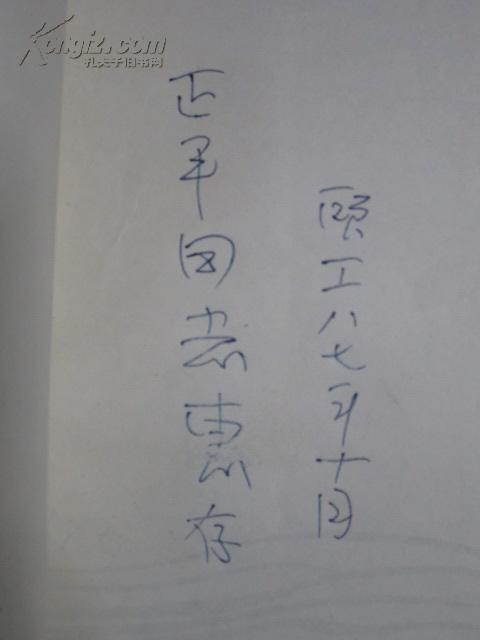 Kongfz.com
孔夫子旧书网
正平同志惠存
顾工八七年十月